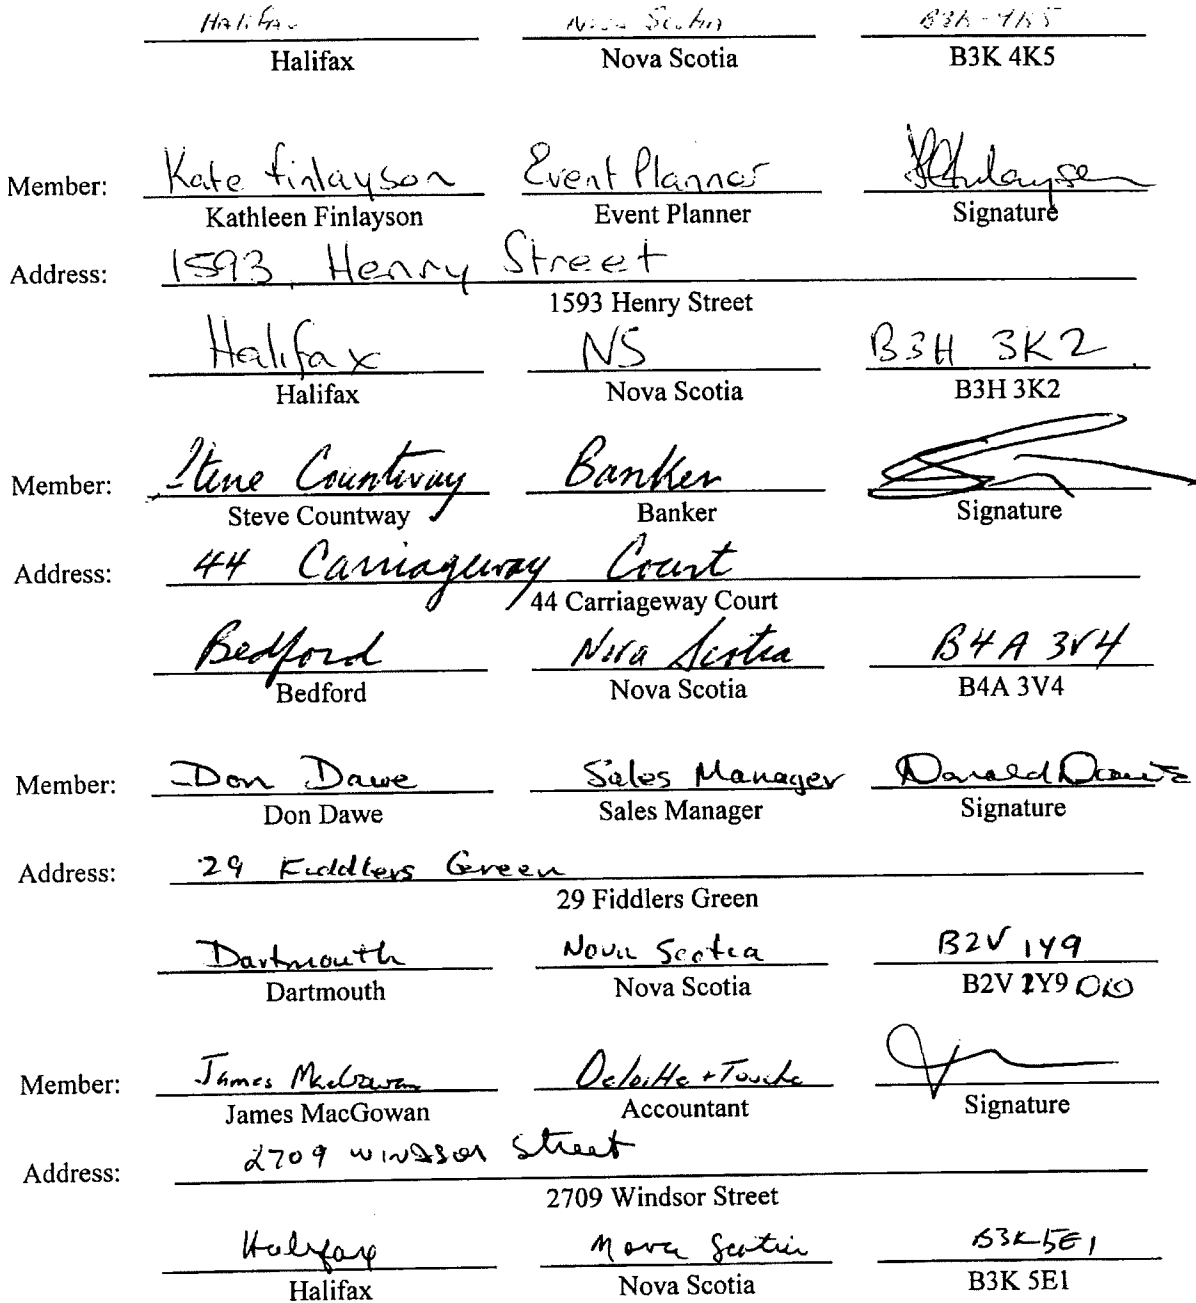 Halifax Nova Scotia B3K-4K5
Halifax Nova Scotia B3K 4K5
Member: Kate Finlayson Event Planner KFinlayson
Kathleen Finlayson Event Planner Signature
Address: 1593 Henry Street
1593 Henry Street
Halifax NS B3H 3K2
Halifax Nova Scotia B3H 3K2
Member: Steve Countway Banker
Steve Countway Banker Signature
Address: 44 Carriageway Court
44 Carriageway Court
Bedford Nova Scotia B4A 3V4
Bedford Nova Scotia B4A 3V4
Member: Don Dawe Sales Manager Donald Dawe
Don Dawe Sales Manager Signature
Address: 29 Fiddlers Green
29 Fiddlers Green
Dartmouth Nova Scotia B2V 1Y9
Dartmouth Nova Scotia B2V 1Y9 DD
Member: James MacGowan Deloitte + Touche
James MacGowan Accountant Signature
Address: 2709 Windsor Street
2709 Windsor Street
Halifax Nova Scotia B3K 5E1
Halifax Nova Scotia B3K 5E1